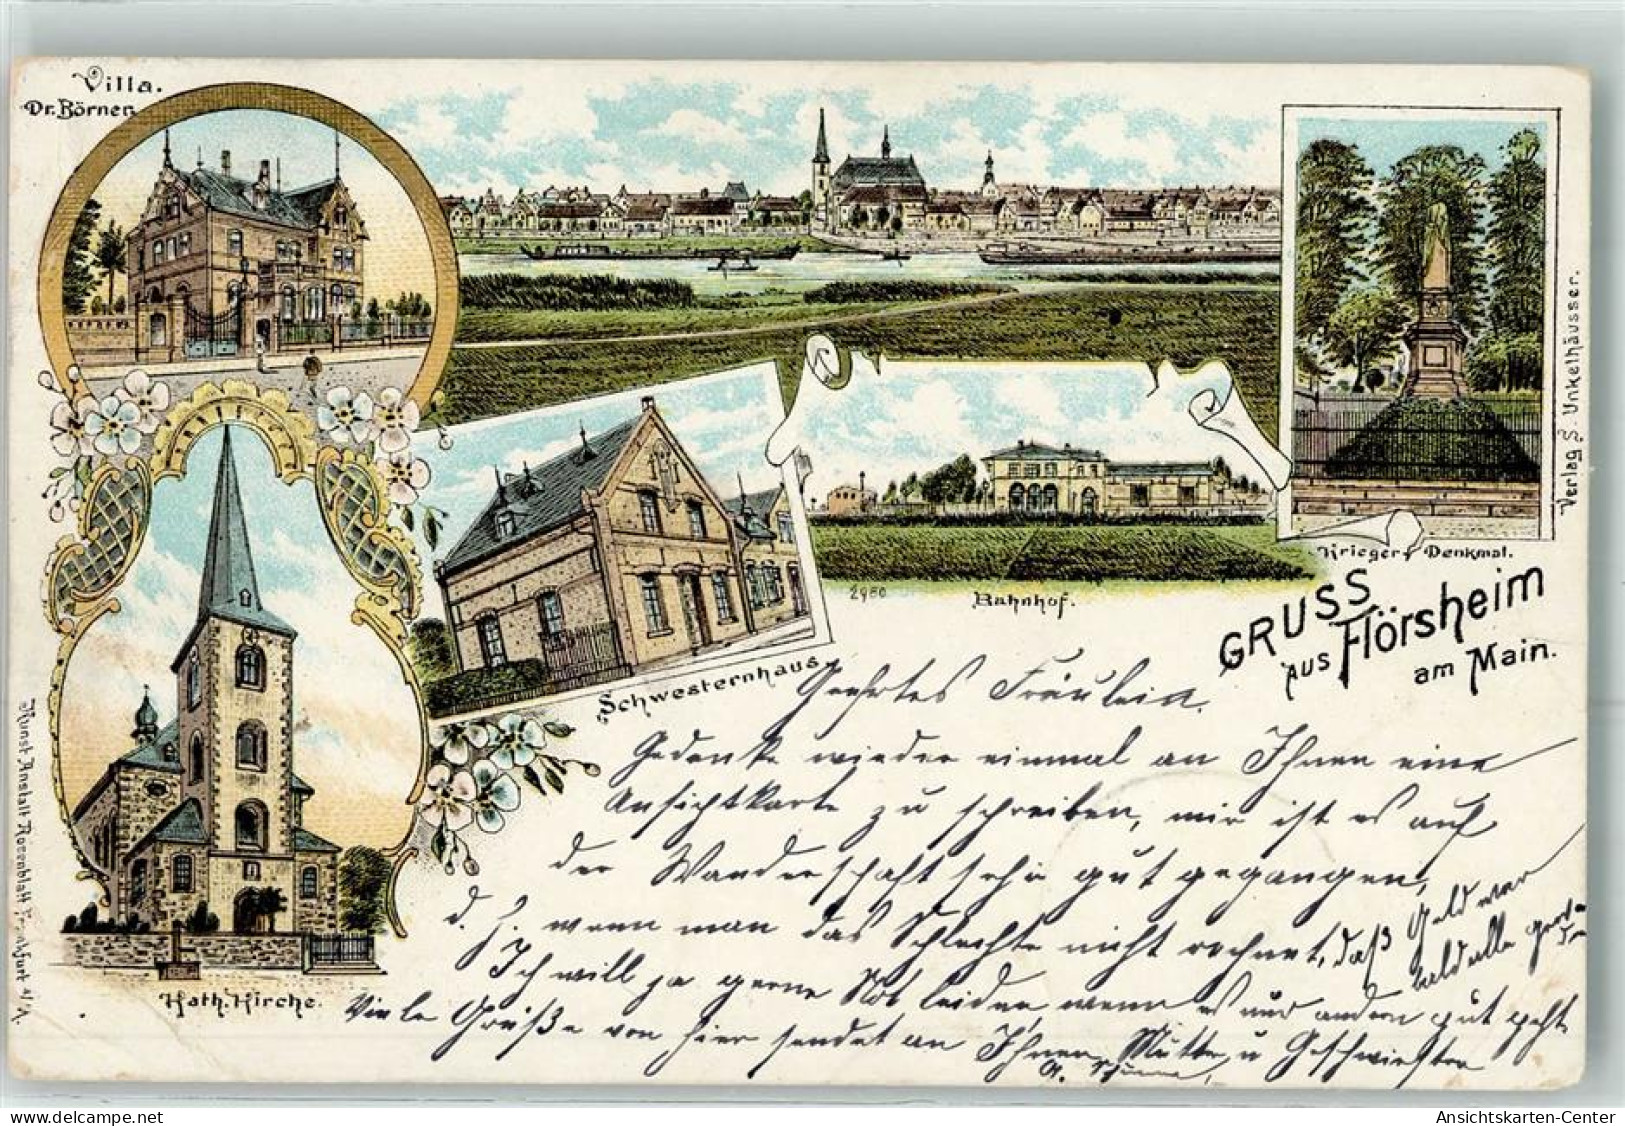 Villa.
Dr. Börner.
Verlag S. Unkelhäusser.
Krieger Denkmal.
2980
Bahnhof.
GRUSS
AUS Flörsheim
am Main.
Schwesternhaus
Kunst Anstalt Rosenblatt Frankfurt a/M.
Kath. Kirche.
Geehrtes Fräulein.
Gedenke wieder einmal an Ihnen eine
Ansichtkarte zu schreiben, mir ist es auf
der Wanderschaft sehr gut gegangen,
d. h. wenn man das Schlechte nicht rechnet, daß Geld war
bald alle geworden
Ich will ja gerne Not leiden wenn es nur andern gut geht
Viele Grüße von hier sendet an Ihnen Mutter u Geschwister
delcampe.net
Ansichtskarten-Center